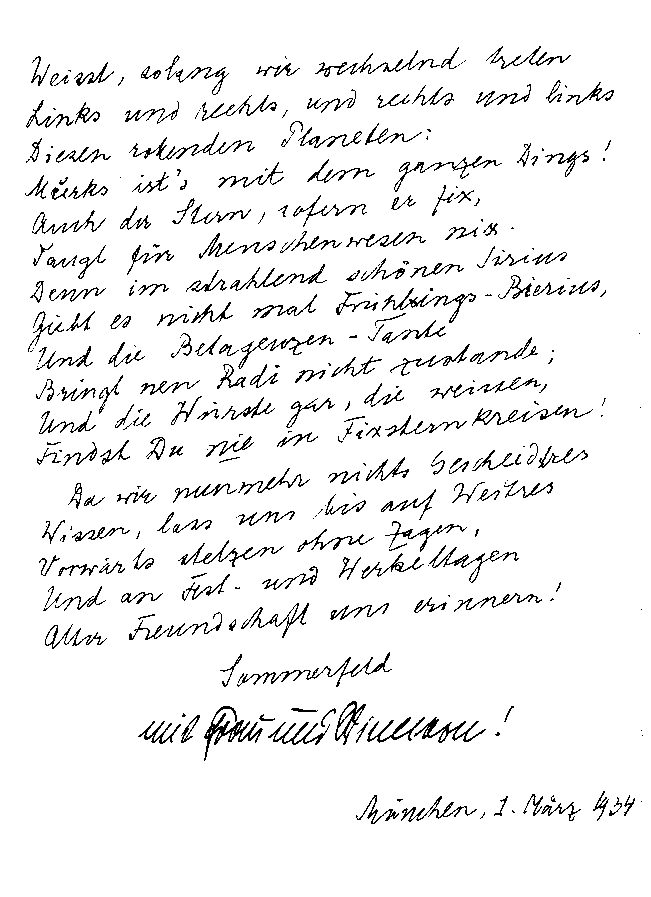 Weisst, solang wir wechselnd treten
Links und rechts, und rechts und links
Diesen rotenden Planeten:
Märks ist's mit dem ganzen Dings!
Auch der Stern, sofern er fix,
Taugt für Menschenwesen nix.
Denn im strahlend schönen Sirius
Giebt es nicht mal Frühlings-Bierius,
Und die Betageuzen-Tante
Bringt nen Radi nicht zustande;
Und die Würste gar, die weissen,
Findst Du nie in Fixsternkreisen!
Da wir nunmehr nichts Gescheidtres
Wissen, lass uns bis auf Weitres
Vorwärts stelzen ohne Zagen,
Und an Fest- und Werkeltagen
Alter Freundschaft uns erinnern!
Sommerfeld
mit Frau und !
München, 1. März 1934